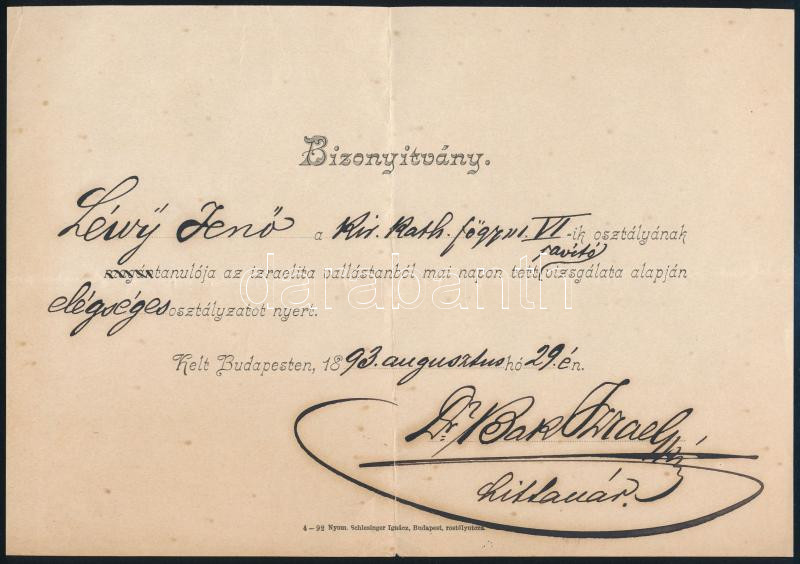 Bizonyitvány.
Léwÿ Jenő a Kir. Kath. főgym. VI-ik osztályának
tanulója az izraelita vallástanból mai napon tett javító vizsgálata alapján
elégséges osztályzatot nyert.
Kelt Budapesten, 1893. augusztus hó 29. én.
Dr. Bak Izrael
hittanár.
4—92 Nyom. Schlesinger Ignácz, Budapest, rostélyutcza.
darabanth